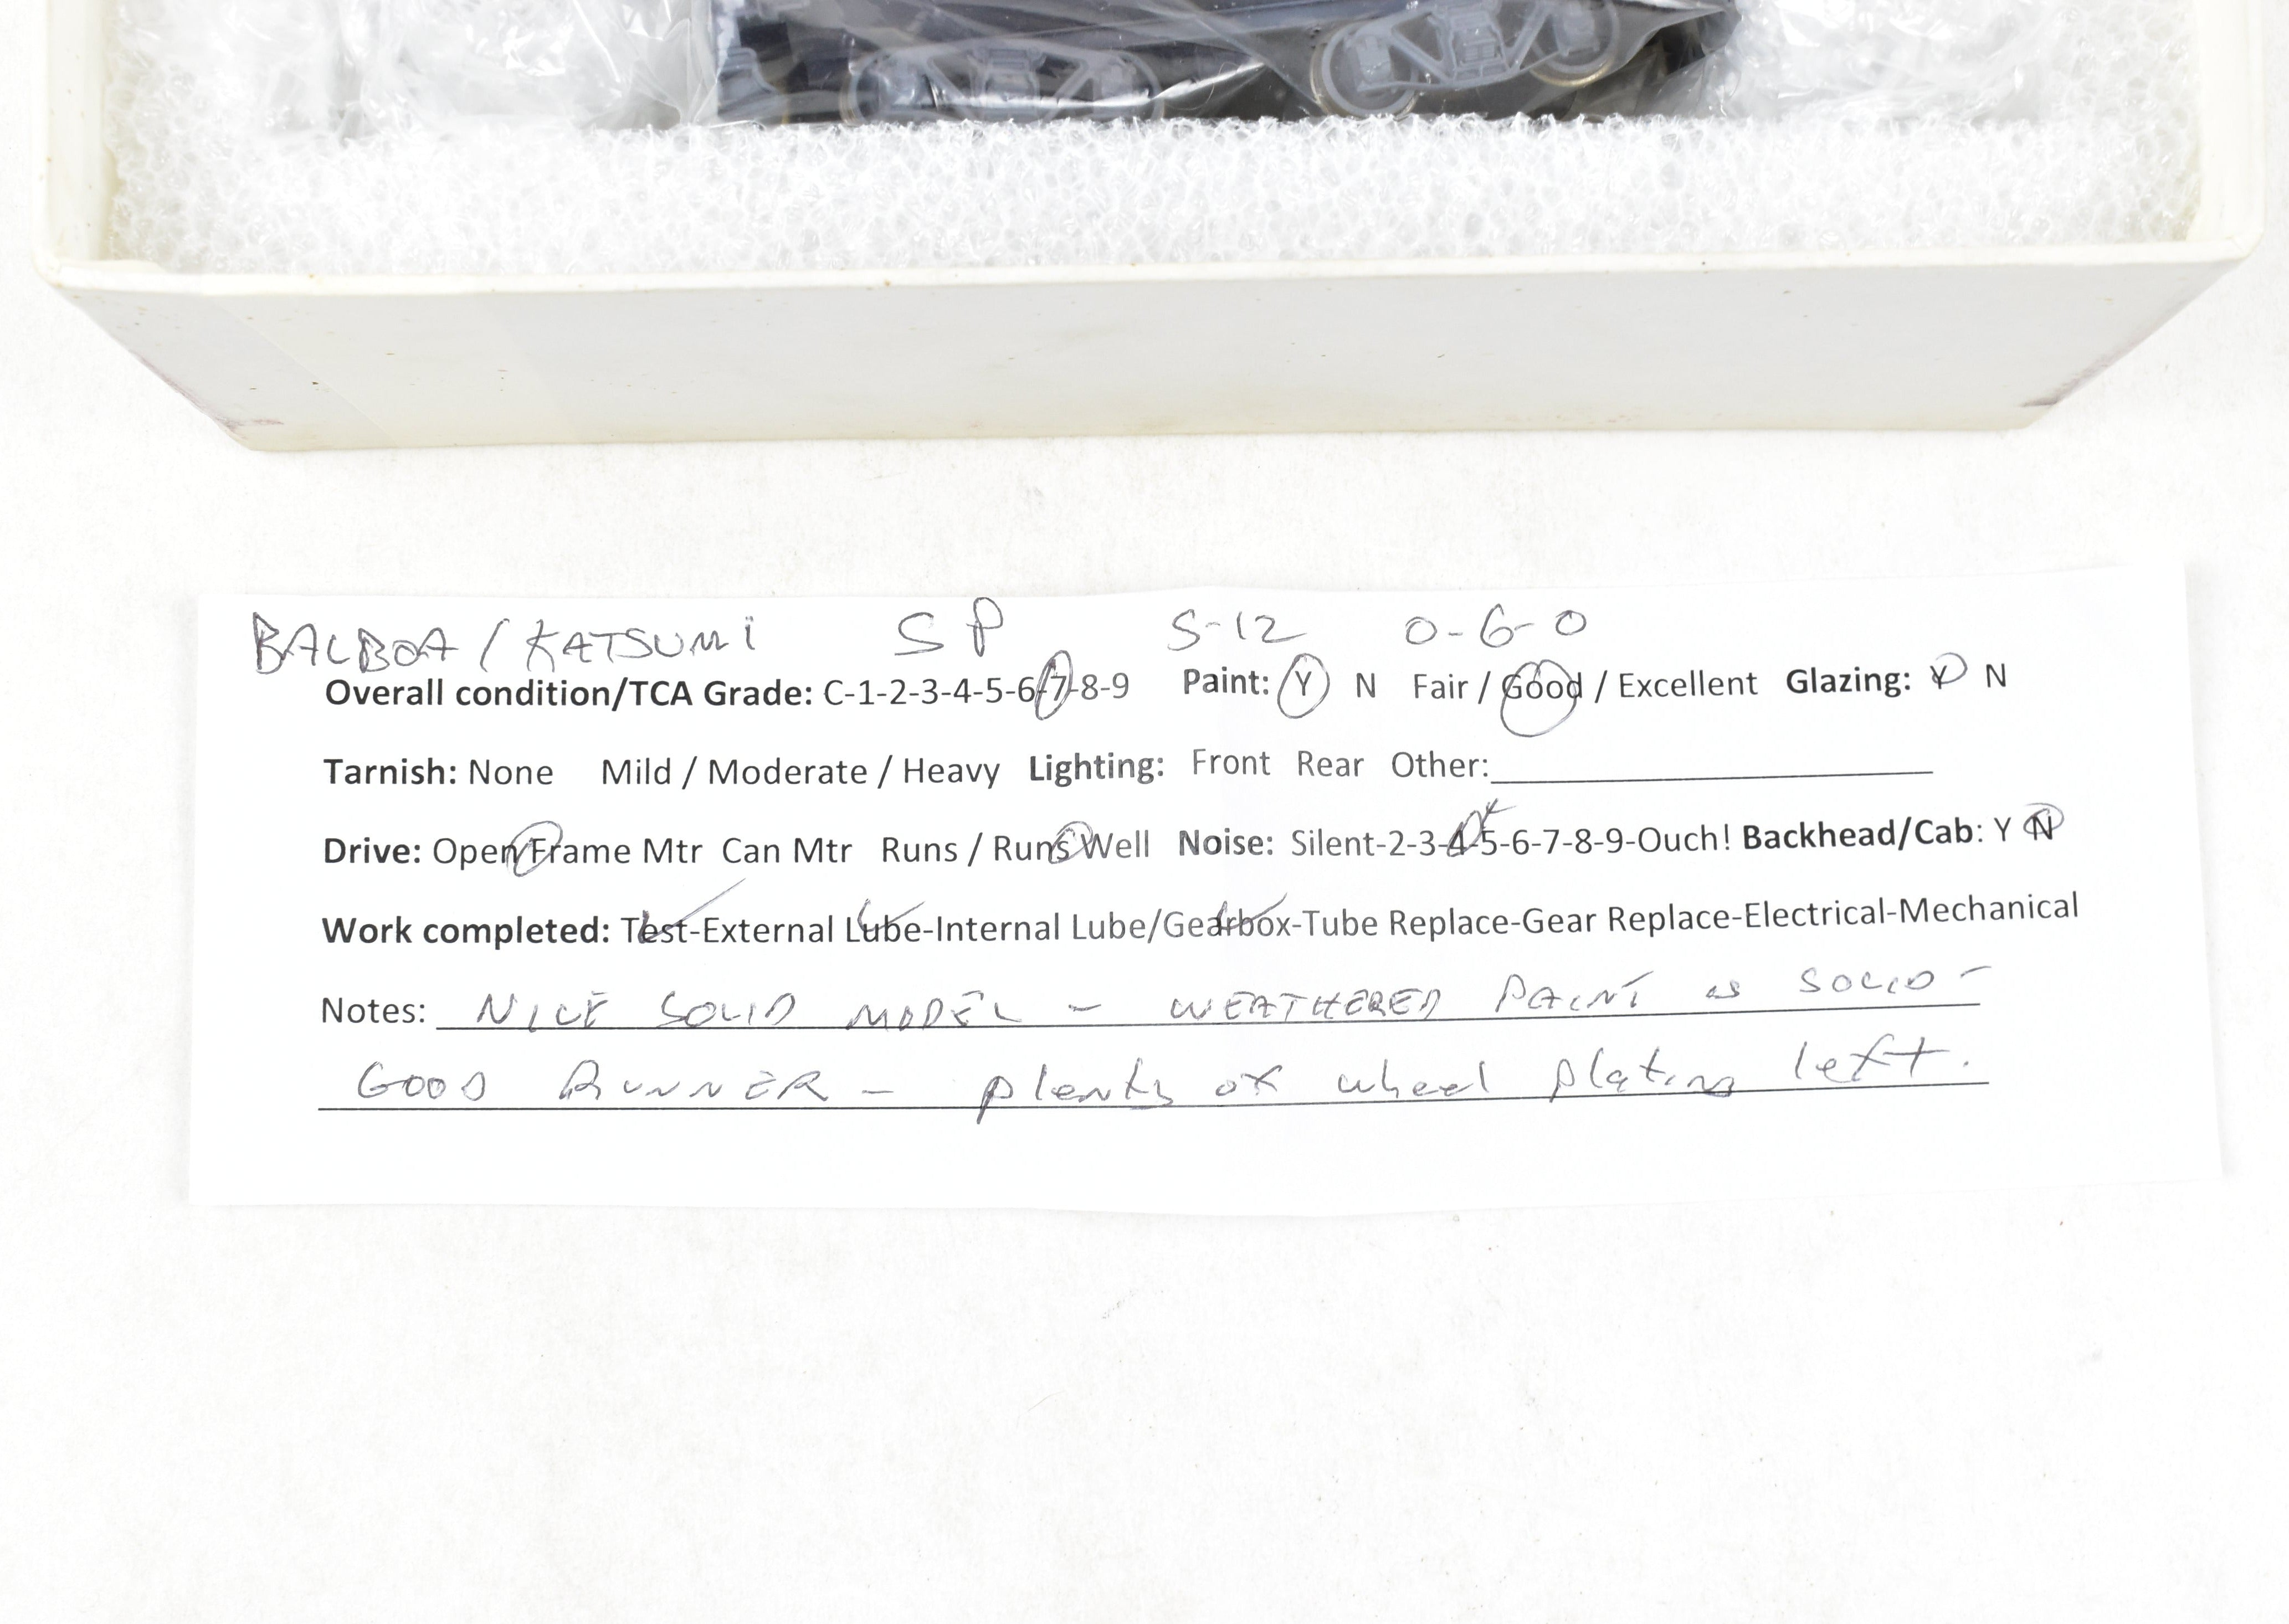 BALBOA / KATSUMI SP S-12 0-6-0
Overall condition/TCA Grade: C-1-2-3-4-5-6-7-8-9 Paint: Y N Fair / Good / Excellent Glazing: Y N
Tarnish: None Mild / Moderate / Heavy Lighting: Front Rear Other:
Drive: Open Frame Mtr Can Mtr Runs / Runs Well Noise: Silent-2-3-4-5-6-7-8-9-Ouch! Backhead/Cab: Y N
Work completed: Test-External Lube-Internal Lube/Gearbox-Tube Replace-Gear Replace-Electrical-Mechanical
Notes: NICE SOLID MODEL - WEATHERED PAINT is SOLID -
GOOD RUNNER - plenty of wheel plating left.